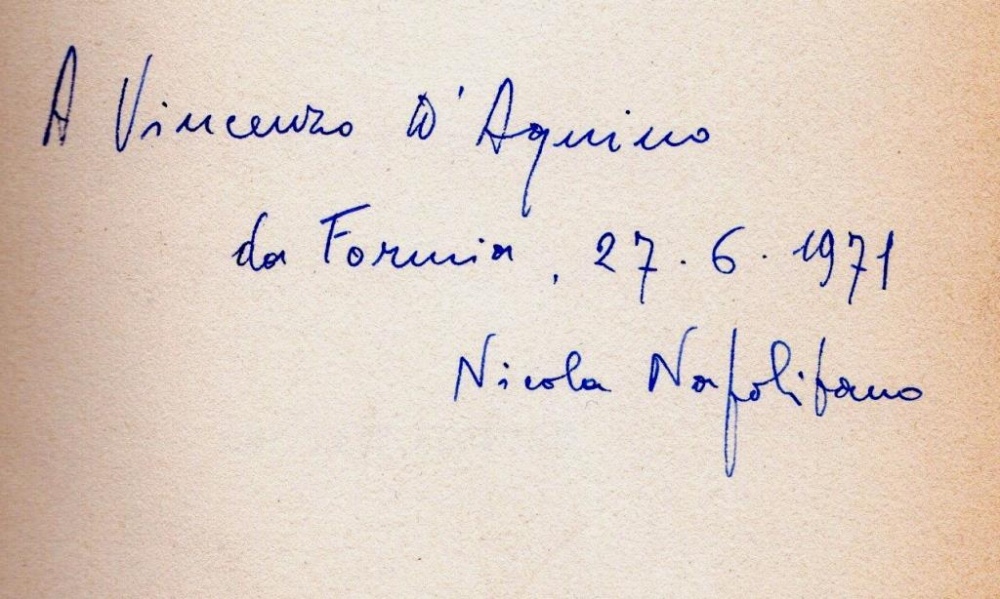 A Vincenzo D'Aquino
da Formia, 27.6.1971
Nicola Napolitano